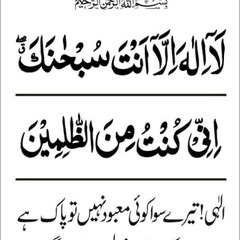 بِسْمِ اللهِ الرَّحْمٰنِ الرَّحِيْمِ
لَآ اِلٰهَ اِلَّآ اَنْتَ سُبْحٰنَكَ ۖۗ
اِنِّىْ كُنْتُ مِنَ الظّٰلِمِيْنَ
الٰہی! تیرے سوا کوئی معبود نہیں تو پاک ہے